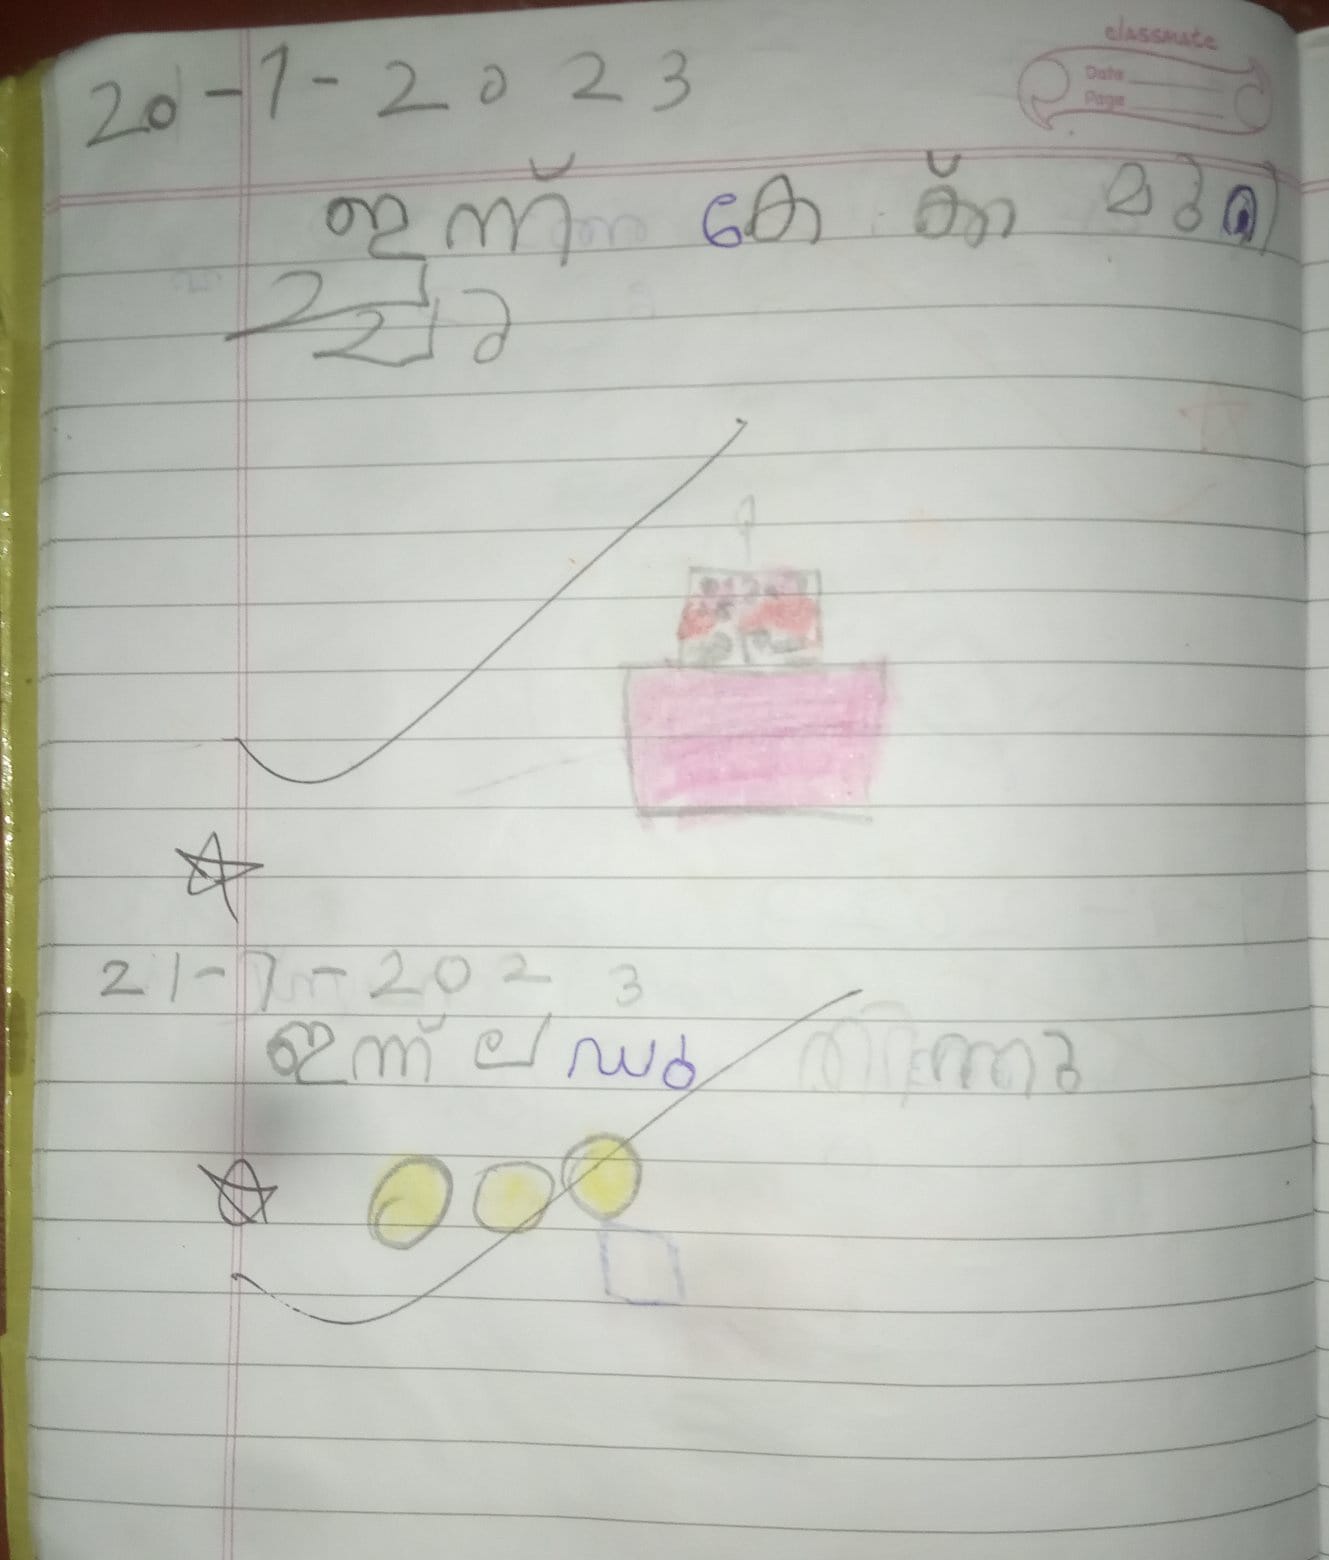 classmate
Date
Page
20-7-2023
ഇന്ന് കേക്ക് മുറി
ച്ചു
21-7-2023
ഇന്ന് ലഡു തിന്നു